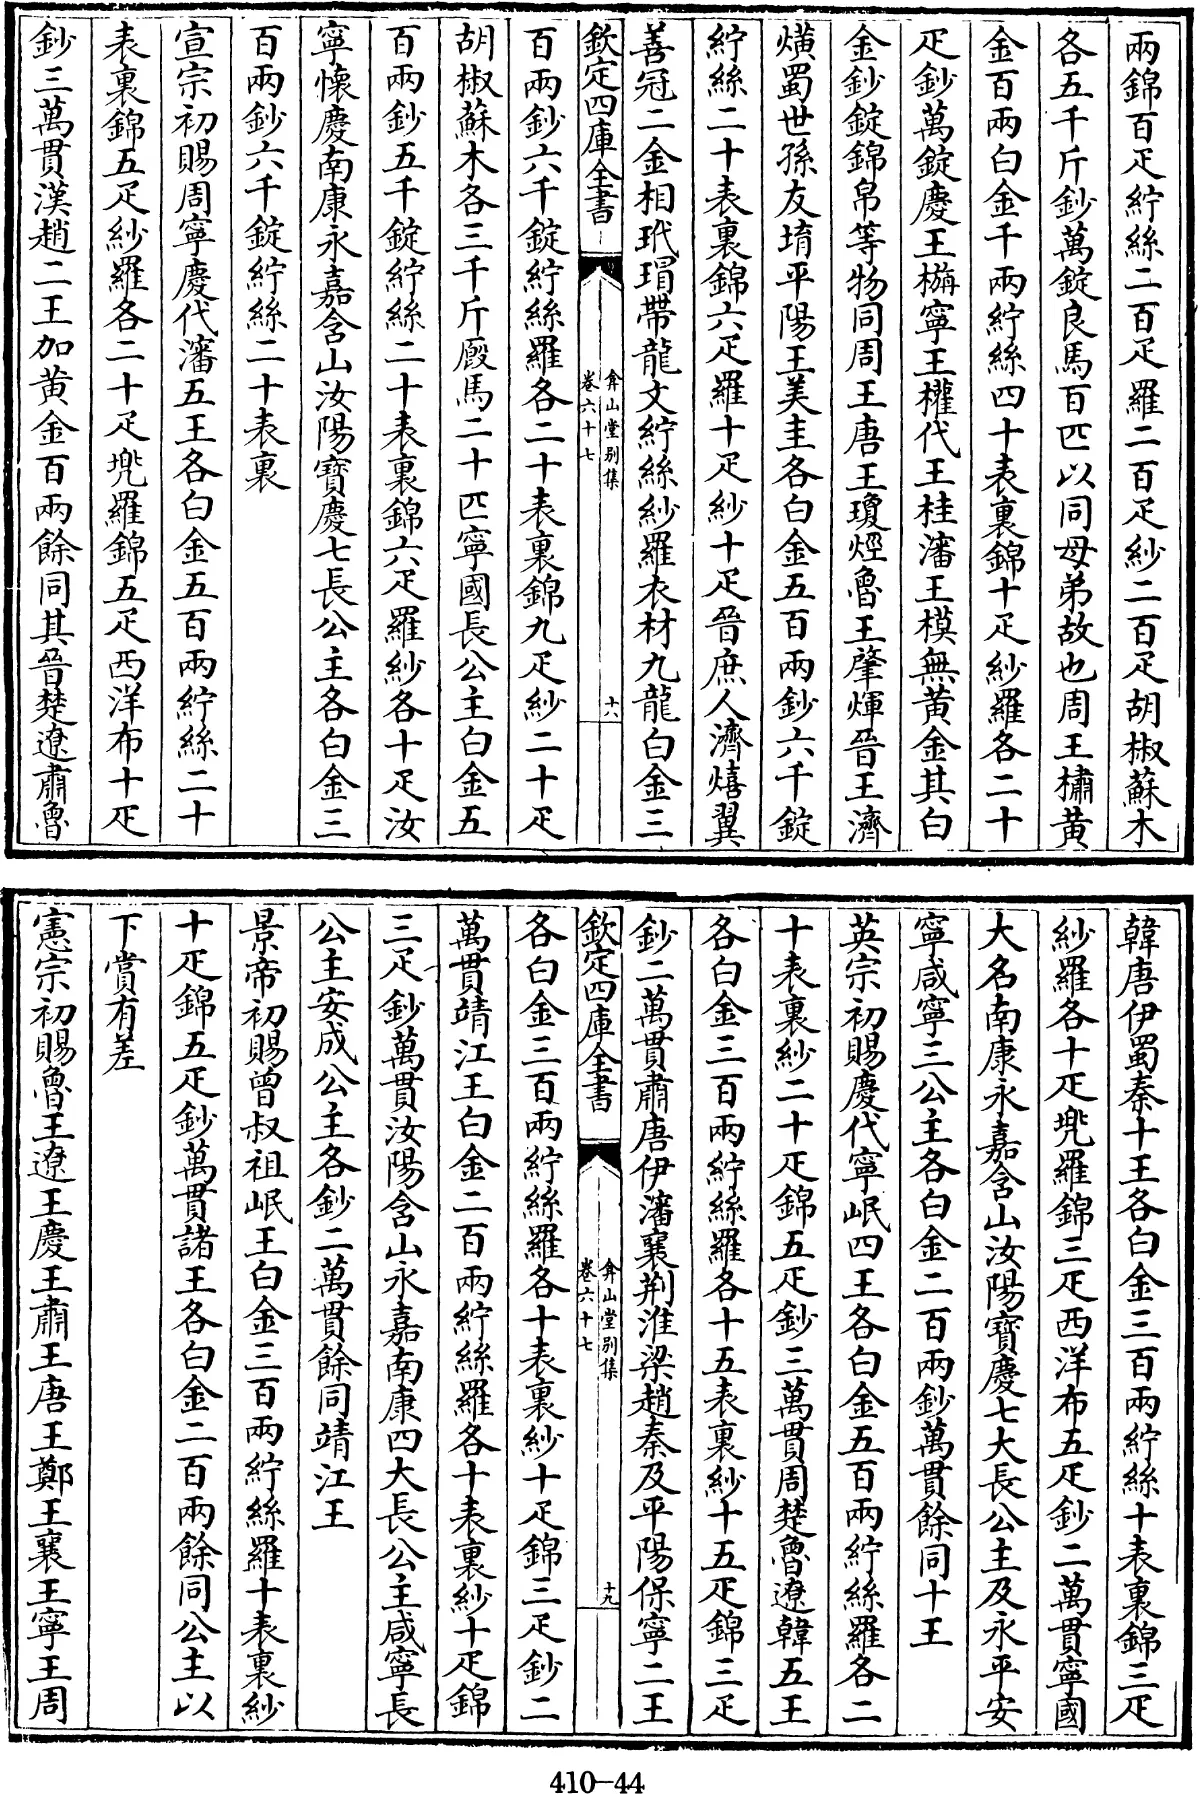 兩錦百疋紵絲二百疋羅二百疋紗二百疋胡椒蘇木
各五千斤鈔萬錠良馬百匹以同母弟故也周王橚黃
金百兩白金千兩紵絲四十表裏錦十疋紗羅各二十
疋鈔萬錠慶王㮵寧王權代王桂瀋王模無黃金其白
金鈔錠錦帛等物同周王唐王瓊烴魯王肇煇晉王濟
熿蜀世孫友堉平陽王美圭各白金五百兩鈔六千錠
紵絲二十表裏錦六疋羅十疋紗十疋晉庶人濟熺翼
善冠二金相玳瑁帶龍文紵絲紗羅衣材九龍白金三
欽定四庫全書
弇山堂別集
卷六十七
十八
百兩鈔六千錠紵絲羅各二十表裏錦九疋紗二十疋
胡椒蘇木各三千斤廐馬二十匹寧國長公主白金五
百兩鈔五千錠紵絲二十表裏錦六疋羅紗各十疋汝
寧懷慶南康永嘉含山汝陽寶慶七長公主各白金三
百兩鈔六千錠紵絲二十表裏
宣宗初賜周寧慶代瀋五王各白金五百兩紵絲二十
表裏錦五疋紗羅各二十疋兠羅錦五疋西洋布十疋
鈔三萬貫漢趙二王加黃金百兩餘同其晉楚遼肅魯
韓唐伊蜀秦十王各白金三百兩紵絲十表裏錦三疋
紗羅各十疋兠羅錦三疋西洋布五疋鈔二萬貫寧國
大名南康永嘉含山汝陽寶慶七大長公主及永平安
寧咸寧三公主各白金二百兩鈔萬貫餘同十王
英宗初賜慶代寧岷四王各白金五百兩紵絲羅各二
十表裏紗二十疋錦五疋鈔三萬貫周楚魯遼韓五王
各白金三百兩紵絲羅各十五表裏紗十五疋錦三疋
鈔二萬貫肅唐伊瀋襄荆淮梁趙秦及平陽保寧二王
欽定四庫全書
弇山堂別集
卷六十七
十九
各白金三百兩紵絲羅各十表裏紗十疋錦三疋鈔二
萬貫靖江王白金二百兩紵絲羅各十表裏紗十疋錦
三疋鈔萬貫汝陽含山永嘉南康四大長公主咸寧長
公主安成公主各鈔二萬貫餘同靖江王
景帝初賜曾叔祖岷王白金三百兩紵絲羅十表裏紗
十疋錦五疋鈔萬貫諸王各白金二百兩餘同公主以
下賞有差
憲宗初賜魯王遼王慶王肅王唐王鄭王襄王寧王周
410—44